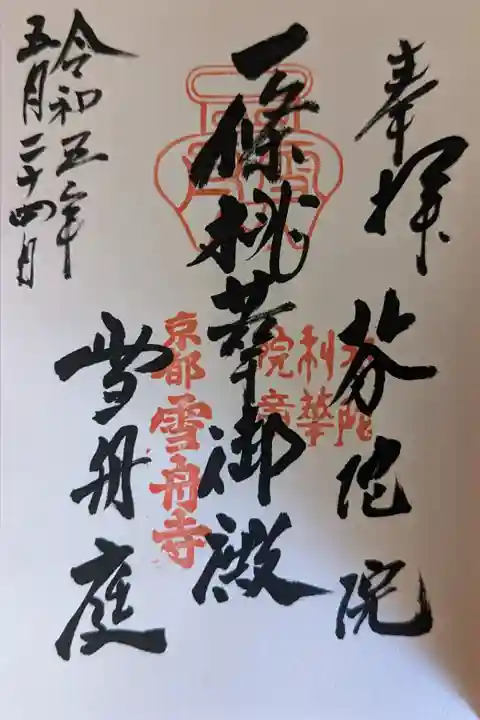 奉拝
芬陀院
一條桃華御殿
利華
院章
京都 雪舟寺
雪舟庭
令和五年
五月二十四日